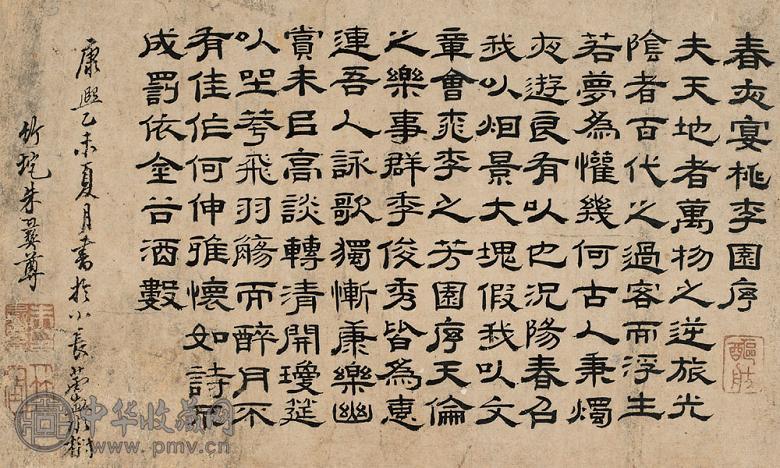 春夜宴桃李園序
夫天地者萬物之逆旅光
陰者百代之過客而浮生
若夢為懽幾何古人秉燭
夜遊良有以也況陽春召
我以烟景大塊假我以文
章會桃李之芳園序天倫
之樂事群季俊秀皆為惠
連吾人詠歌獨慚康樂幽
賞未已高談轉清開瓊筵
以坐芲飛羽觴而醉月不
有佳作何伸雅懷如詩不
成罰依金谷酒數
康熙乙未夏月書於小長蘆
竹垞朱彝尊
中华收藏网
www.pmv.cn